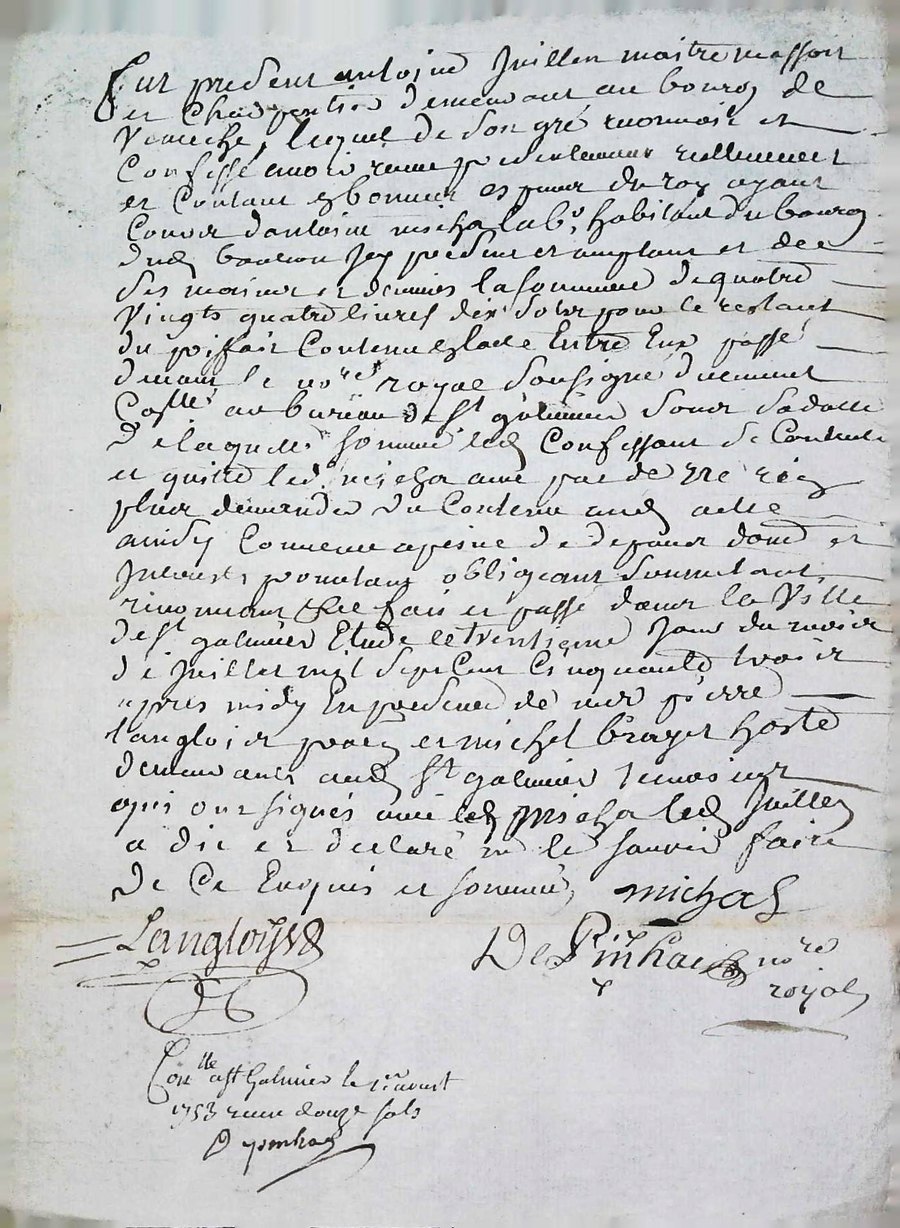 Fut present antoine Juillen maitre masson
et Charpentier demeurant au bourg de
Veauche, lequel de Son gré reconnoit et
Confesse avoir receu presentement reellement
et Contant en bonnes especes du roy ayant
Cours d'antoine micha labr habitant du bourg
dud present et acceptant et de
Ses mains et deniers la somme de quatre
Vingts quatre livres dix Sols pour le restant
du prisfait Contenu Entre Eux passé
devant le nore royal Soussigné duement
Collé au bureau de St galmier
De laquelle somme led Confessant Se Contente
et quitte led micha avec pacte de ne rien
plus demander du Contenu aud acte
ainsy Convenu a peine de depens dom et
Interests pourtant obligeant Soumettant
renonceant &ce fait et passé dans la Ville
de St galmier Etude le trentieme Jour du mois
de Juillet mil Sept Cent Cinquante trois
apres midy En presence de pierre
langlois et michel brayet hoste
demeurants aud St galmier temoins
qui ont signés avec led Micha led Juillen
a dit et declaré ne le sauvoir faire
De Ce Enquis et sommé, michas
Langloys
De Pinhac nore
royal
Conlle a St Galmier le 1er aoust
1753 receu douze sols
Depinhac